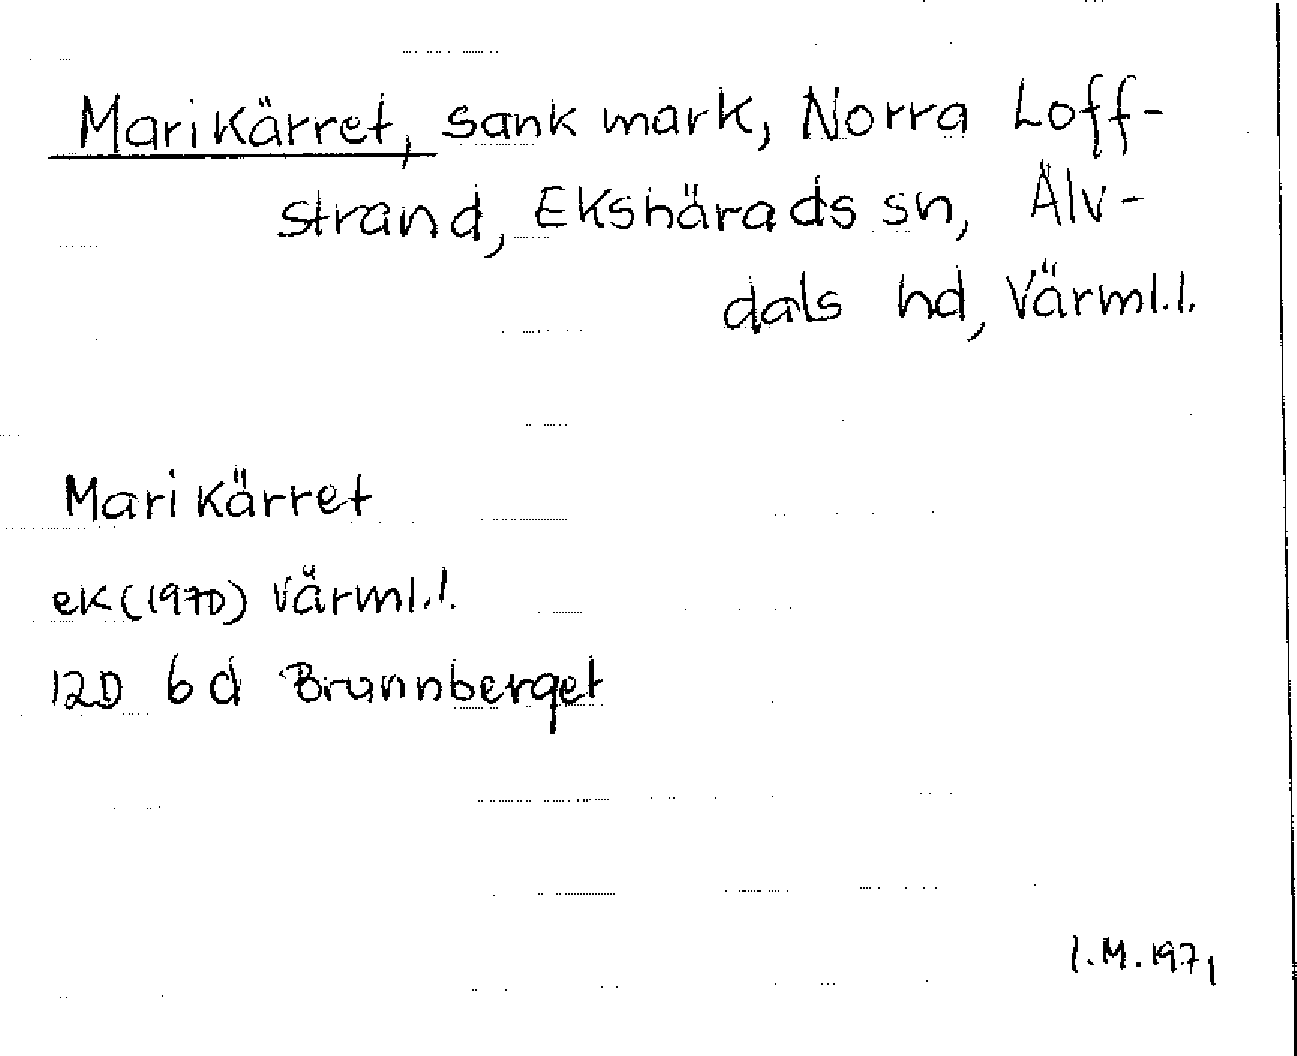 Marikärret, sank mark, Norra Loff-
strand, Ekshärads sn, Älv-
dals hd, Värml.l.
Marikärret
ek (1970) Värml.l.
12D 6d Brunnberget
I.M. 1971